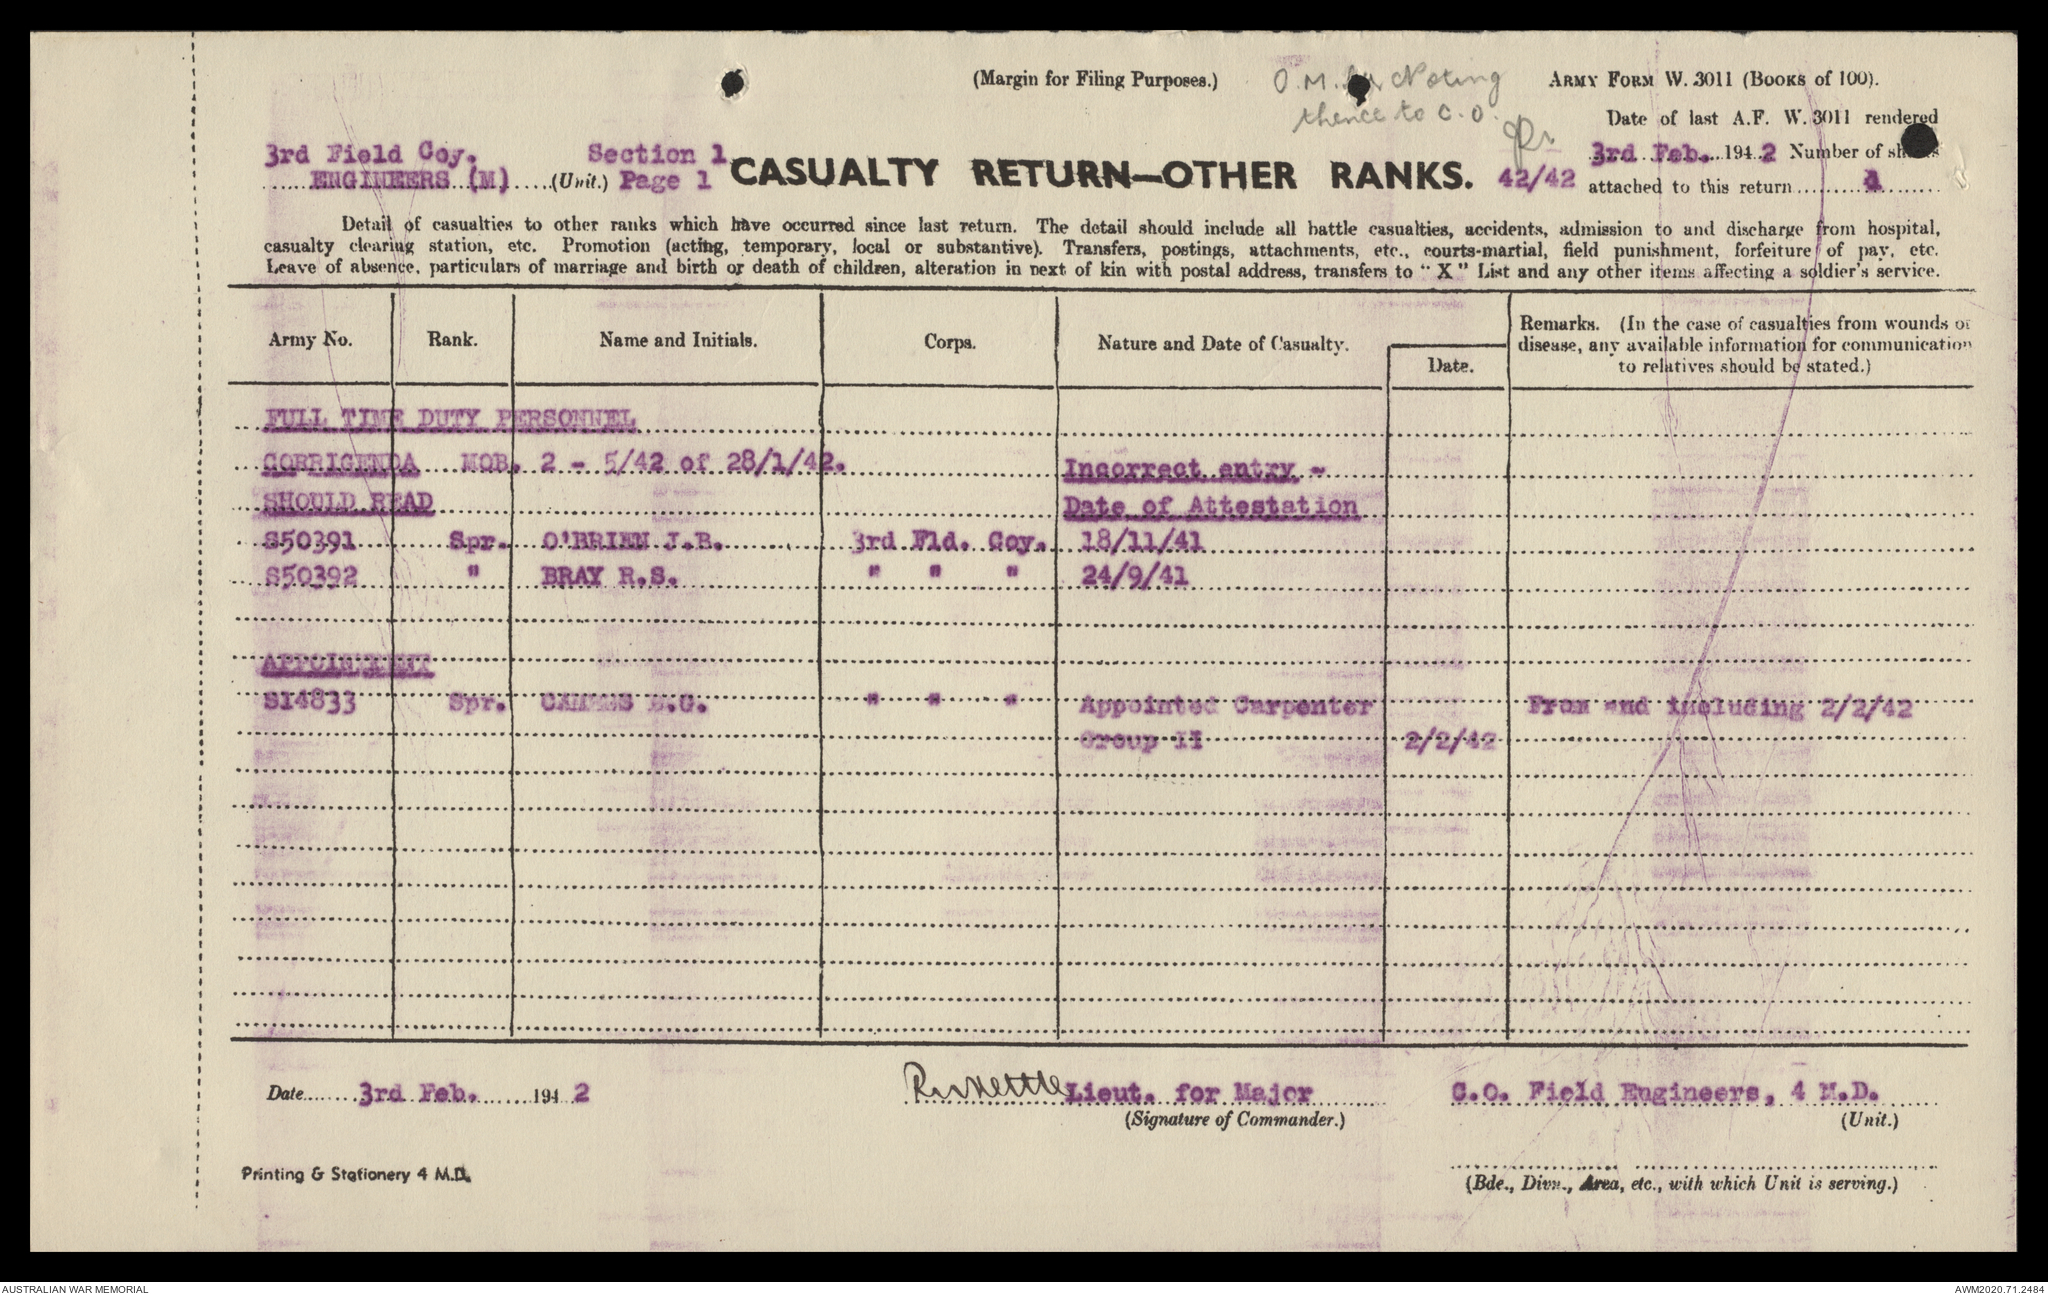 (Margin for Filing Purposes.)
O.M. for Noting
thence to C.O.
ARMY FORM W. 3011 (BOOKS of 100).
Date of last A.F. W. 3011 rendered
3rd Feb. 1942 Number of sheets
attached to this return
3rd Field Coy. Section 1
ENGINEERS (M) (Unit.) Page 1
CASUALTY RETURN—OTHER RANKS. 42/42
Detail of casualties to other ranks which have occurred since last return. The detail should include all battle casualties, accidents, admission to and discharge from hospital,
casualty clearing station, etc. Promotion (acting, temporary, local or substantive). Transfers, postings, attachments, etc., courts-martial, field punishment, forfeiture of pay, etc.
Leave of absence, particulars of marriage and birth or death of children, alteration in next of kin with postal address, transfers to "X" List and any other items affecting a soldier's service.
Army No. Rank. Name and Initials. Corps. Nature and Date of Casualty. Date.
Remarks. (In the case of casualties from wounds or
disease, any available information for communication
to relatives should be stated.)
FULL TIME DUTY PERSONNEL
CORRIGENDA MOB. 2 - 5/42 of 28/1/42. Incorrect entry -
SHOULD READ Date of Attestation
S50391 Spr. O'BRIEN J.B. 3rd Fld. Coy. 18/11/41
S50392 " BRAY R.S. " " " 24/9/41
APPOINTMENT
S14833 Spr. " " " Appointed Carpenter From and including 2/2/42
Group II 2/2/42
Date 3rd Feb. 1942 Lieut. for Major C.O. Field Engineers, 4 M.D.
(Signature of Commander.) (Unit.)
Printing & Stationery 4 M.D.
(Bde., Divn., Area, etc., with which Unit is serving.)
AUSTRALIAN WAR MEMORIAL AWM2020.71.2484